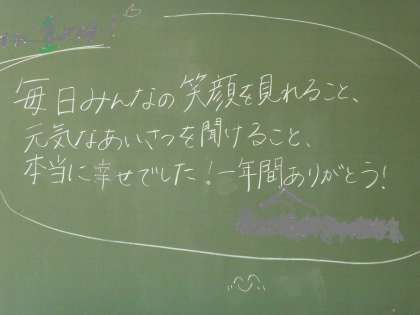 毎日みんなの笑顔を見れること、
元気なあいさつを聞けること、
本当に幸せでした！一年間ありがとう！